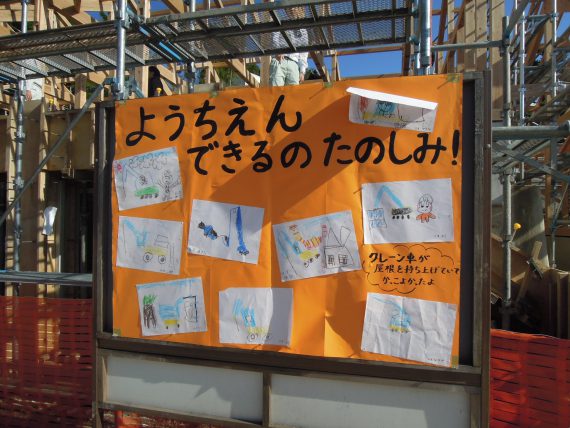 ようちえん
できるの たのしみ!
クレーン車が
屋根を持ち上げていて
かっこよかったよ